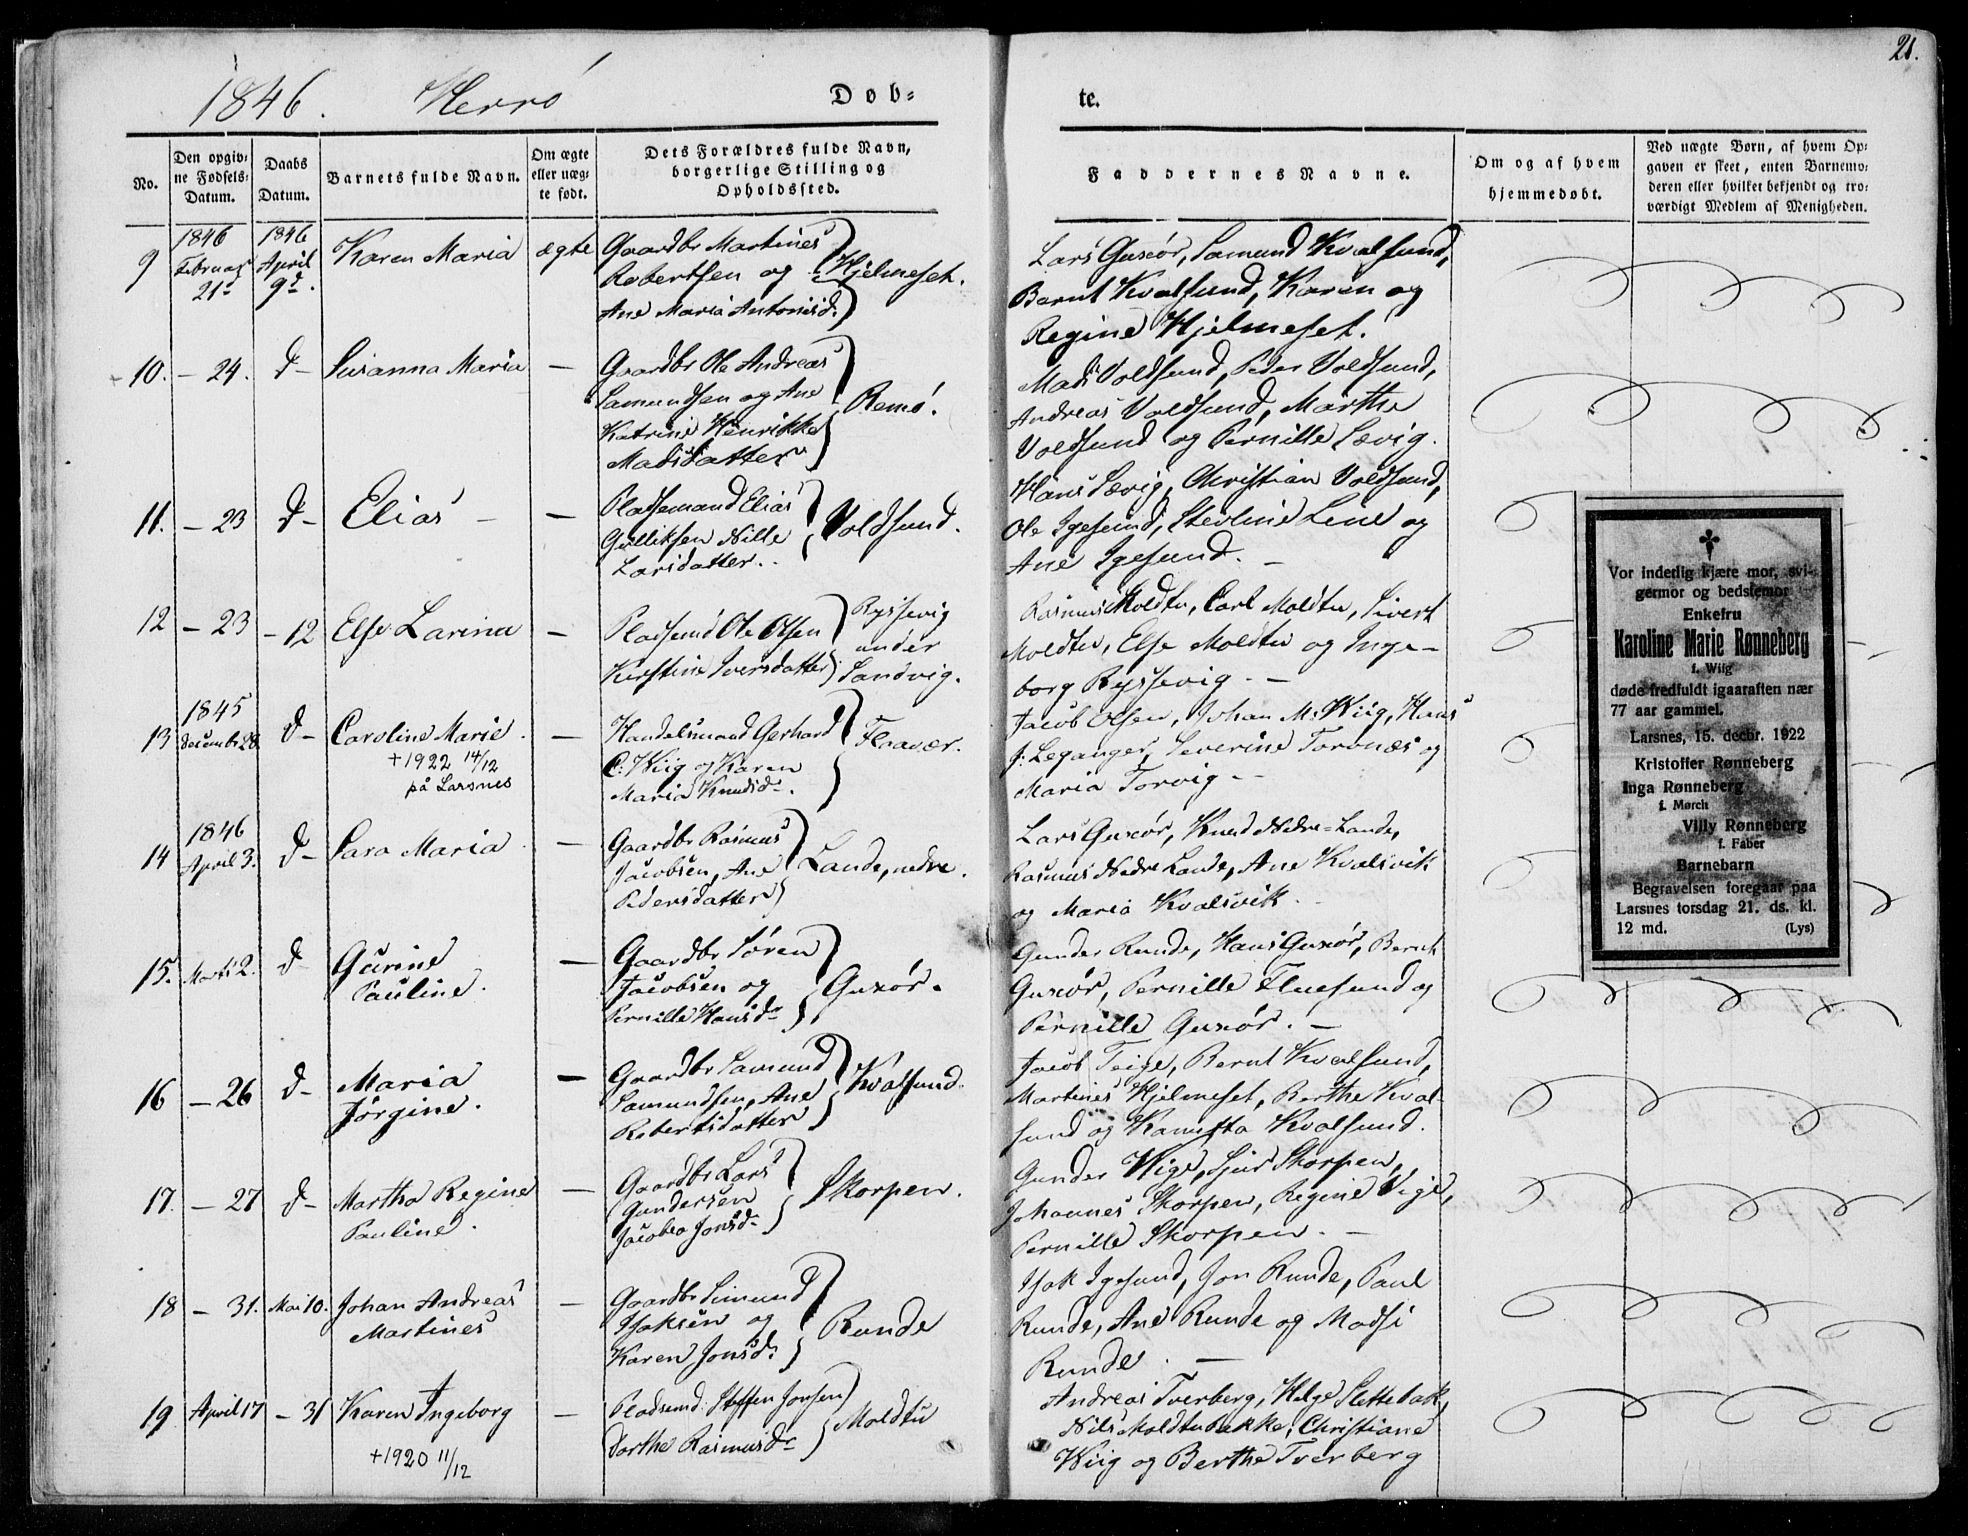 21.
1846. Herrö Döb-
te.
No.
Den opgiv-
ne Fødsels-
Datum.
Daabs
Datum.
Barnets fulde Navn.
Om ægte
eller uæg-
te født.
Dets Forældres fulde Navn,
borgerlige Stilling og
Opholdssted.
Faddernes Navne.
Om og af hvem
hjemmedøbt.
Ved uægte Børn, af hvem Op-
gaven er skeet, enten Barnemo-
deren eller hvilket bekjendt og tro-
værdigt Medlem af Menigheden.
9
1846
Februar
21de
1846
April
9d.
Karen Maria
ægte
Gaardbr Martines
Robertsen og
Ane Maria Antonisd.
Hjelmeset.
Lars Guxör, Samund Kvalsund,
Bernt Kvalsund, Karen og
Regine Hjelmeset.
10. - 24. d- Susanna Maria -
Gaardbr Ole Andreas
Samundsen og Ane
Katrine Henrikke
Madsdatter
Remö.
Mads Voldsund, Peder Voldsund,
Andreas Voldsund, Marthe
Voldsund og Pernille Sævig.
11. - 23 d- Elias - -
Pladsemand Elias
Gulliksen Nille
Larsdatter.
Voldsund.
Hans Sævig, Christian Voldsund,
Ole Igesund, Sterline Lene og
Ane Igesund. -
12 - 23 - 12 Else Larina -
Pladsemd Ole Olsen
Kirstine Iversdatter
Ryssevig
under
Sandvig.
Rasmus Moldtu, Carl Moldtu, Sivert
Moldtu, Else Moldtu og Inge-
borg Ryssevig. -
13
1845
December 28.
d-
Caroline Marie.
+1922 14/12
på Larsnes
-
Handelsmand Gerhard
C. Wiig og Karen
Maria Knudsd.
Flaavær.
Jacob Olsen, Johan M. Wiig, Hans
J. Leganger, Severine Torvnæs og
Maria Torvig -
14
1846
April 3.
d-
Sara Maria
-
Gaardbr Rasmus
Jacobsen, Ane
Pedersdatter
Lande, nedre.
Lars Guxör, Knud Nedre-Lande,
Rasmus Nedre Lande, Ane Kvalsvik
og Maria Kvalsvik.
15. Marts 2. d-
Gurine
Pauline.
-
Gaardbr Sören
Jacobsen og
Pernille Hansd.
Guxör.
Gunder Runde, Hans Guxör, Bernt
Guxör, Pernille Fluesund og
Pernille Guxör. -
16 - 26 d-
Maria
Jörgine.
-
Gaardbr Samund
Samundsen, Ane
Robertsdatter
Kvalsund.
Jacob Teige, Bernt Kvalsund,
Martines Hjelmeset, Berthe Kval-
sund og Kanutta Kvalsund.
17. - 27 d-
Martha Regine
Pauline.
-
Gaardbr Lars
Gundersen
Jacobea Jonsd.
Skorpen.
Gunder Wige, Sjur Skorpen,
Johannes Skorpen, Regine Vige,
Pernille Skorpen. -
18 - 31. Mai 10.
Johan Andreas
Martines
-
Gaardbr Simund
Isaksen og
Karen Jonsd.
Runde
Isak Igesund, Jon Runde, Paul
Runde, Ane Runde og Madsi
Runde. -
19 April 17 - 31
Karen Ingeborg
+1920 11/12
-
Pladsemd. Steffen Jonsen
Dorthe Rasmusd.
Moldtu
Andreas Tverberg, Helge Slettebak,
Nils Moldtubakke, Christiane
Wiig og Berthe Tverberg
Vor inderlig kjære mor, svi-
germor og bedstemor
Enkefru
Karoline Marie Rønneberg
f. Wiig
døde fredfuldt igaaraften nær
77 aar gammel.
Larsnes, 15. decbr. 1922
Kristoffer Rønneberg
Inga Rønneberg
f. Mørch
Villy Rønneberg
f. Faber
Barnebarn
Begravelsen foregaar paa
Larsnes torsdag 21. ds. kl.
12 md. (Lys)